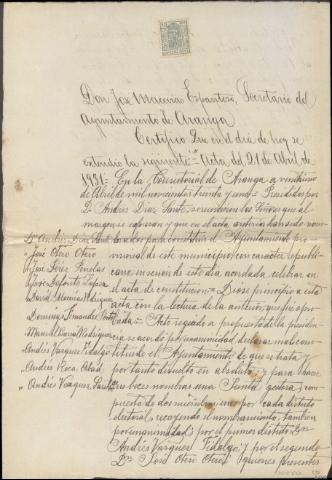 Don José Maceira Espantoso, Secretario del
Ayuntamiento de Aranga
Certifico: Que en el dia de hoy se
extendio la siguiente Acta, del 21 de Abril de
1931 = En la Consistorial de Aranga a veintiuno
de Abril de mil novecientos treinta y uno = Presididos por
D. Andrés Diaz se reunieron los Señores que al
margen se expresan y que en el acta anterior han sido nom
brados para constituir el Ayuntamiento pro
visional de este municipio con carácter republi
cano, en sesion de este dia, acordada celebrar en
el acta de constitucion = Diose principio a esta
acta con la lectura de la anterior, que fue apro
bada = Acto seguido a propuesta de la presiden
cia se acordó por unanimidad declarar mal cons
tituido el Ayuntamiento de que se trata y
por tanto disuelto en absoluto y para
en veces nombrar una Junta gestora, com
puesta de dos miembros uno por cada distrito
electoral, recayendo el nombramiento, tambien
por unanimidad; por el primer distrito Don
Andrés Vázquez Fidalgo; y por el segundo
Dn José Otero Otero, quienes presentes
Dn Andrés Diaz
" José Otero Otero
" José Pérez
" José
" David Maceiras Rodriguez
" Domingo
" Manuel Rodriguez
" Andrés Vázquez Fidalgo
" Andrés Roca Abad
" Andrés Vázquez